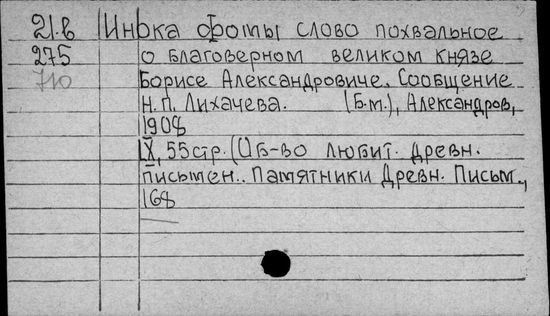 21.в Инока Фомы слово похвальное
275 о благоверном великом князе
710 Борисе Александровиче. Сообщение
Н.П. Лихачева. (Б.м.), Александров,
1908
IX, 55 стр. (Об-во любит. древн.
письмен.. Памятники Древн. Письм.,
168